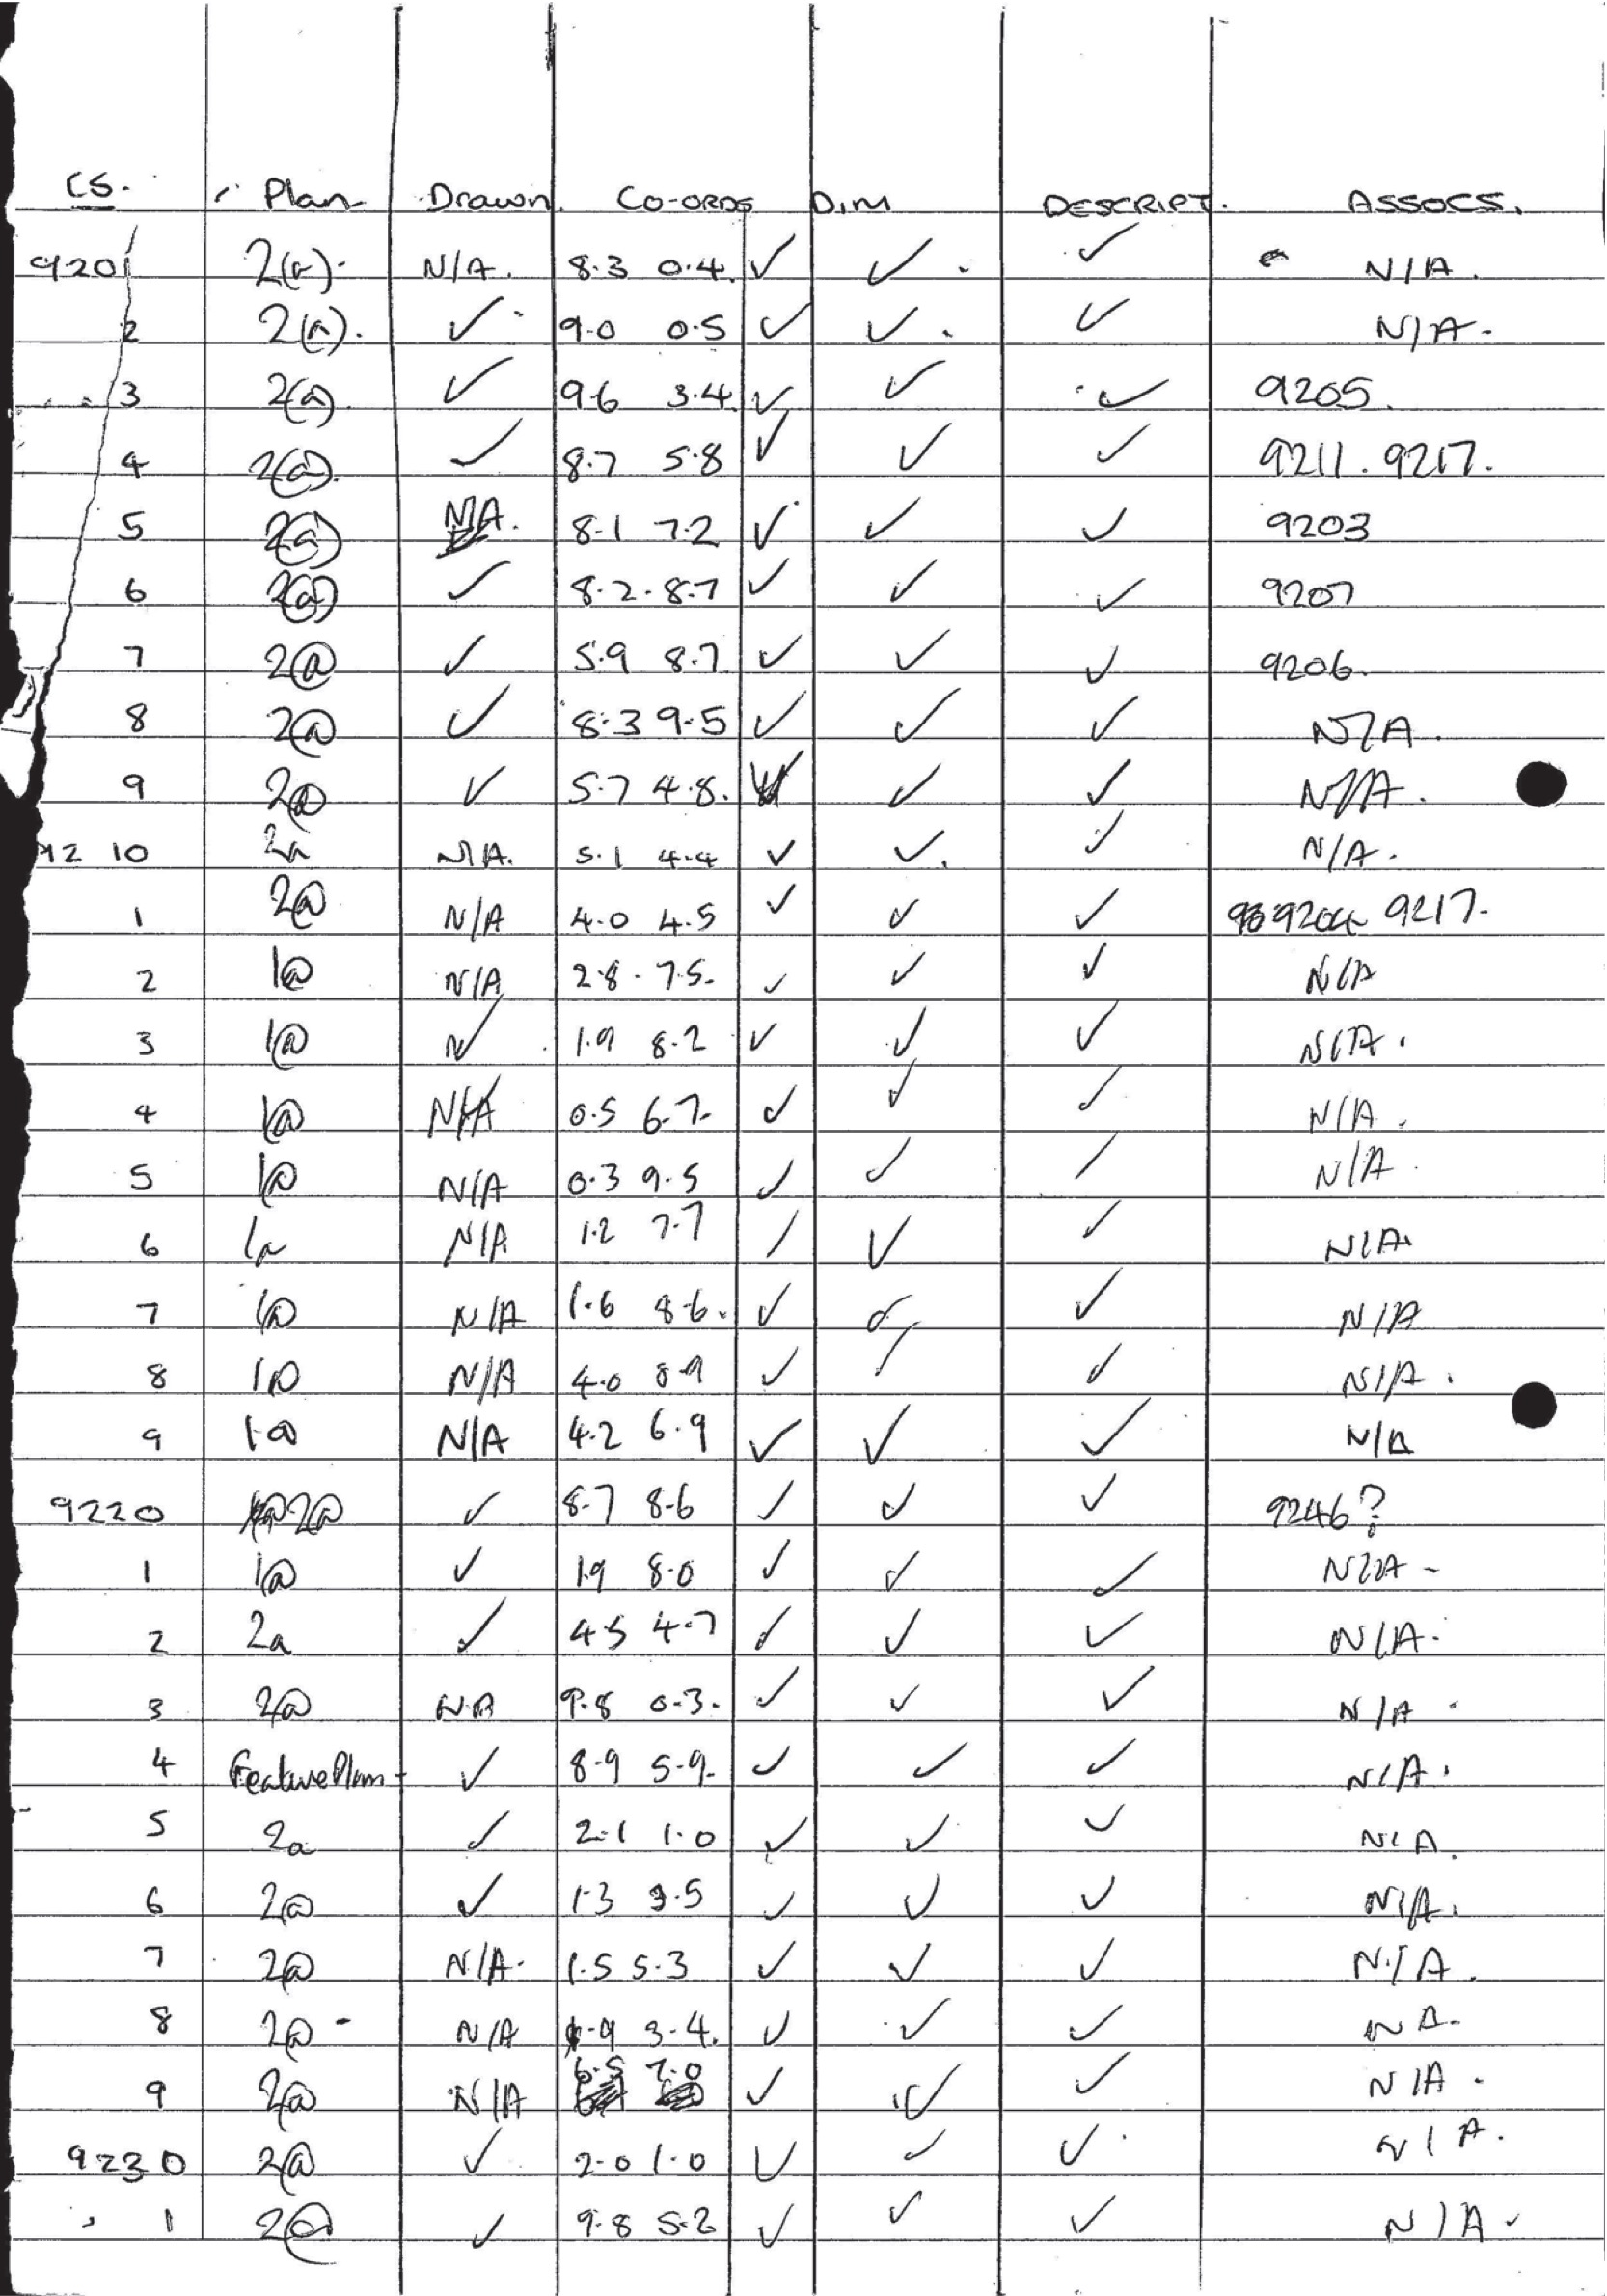 CS. Plan Drawn. CO-ORDS DIM DESCRIPT. ASSOCS.
9201 2(a). N/A. 8.3 0.4. ✓ ✓ ✓ N/A.
2 2(a). ✓ 9.0 0.5 ✓ ✓ ✓ N/A.
3 2(a). ✓ 9.6 3.4 ✓ ✓ ✓ 9205.
4 2(a). ✓ 8.7 5.8 ✓ ✓ ✓ 9211. 9217.
5 2(a) N/A. 8.1 7.2 ✓ ✓ ✓ 9203
6 2(a) ✓ 8.2. 8.7 ✓ ✓ ✓ 9207
7 2(a) ✓ 5.9 8.7 ✓ ✓ ✓ 9206.
8 2(a) ✓ 8.3 9.5 ✓ ✓ ✓ N/A.
9 2(a) ✓ 5.7 4.8. ✓ ✓ ✓ N/A.
9210 2a N/A. 5.1 4.4 ✓ ✓ ✓ N/A.
1 2(a) N/A 4.0 4.5 ✓ ✓ ✓ 9204 9217.
2 1(a) N/A 2.8 . 7.5. ✓ ✓ ✓ N/A
3 1(a) ✓ 1.9 8.2 ✓ ✓ ✓ N/A.
4 1(a) N/A 0.5 6.7. ✓ ✓ ✓ N/A.
5 1(a) N/A 0.3 9.5 ✓ ✓ / N/A
6 1a N/A 1.2 7.7 / ✓ ✓ N/A.
7 1(a) N/A 1.6 8.6. ✓ ✓ ✓ N/A
8 1(a) N/A 4.0 8.9 ✓ ✓ ✓ N/A.
9 1(a) N/A 4.2 6.9 ✓ ✓ ✓ N/A
9220 2(a) ✓ 8.7 8.6 ✓ ✓ ✓ 9246?
1 1(a) ✓ 1.9 8.0 ✓ ✓ ✓ N/A -
2 2a ✓ 4.5 4.7 ✓ ✓ ✓ N/A.
3 2(a) N.A 9.8 0.3. ✓ ✓ ✓ N/A .
4 Feature Plan ✓ 8.9 5.9. ✓ ✓ ✓ N/A.
5 2a ✓ 2.1 1.0 ✓ ✓ ✓ N/A.
6 2(a) ✓ 1.3 3.5 ✓ ✓ ✓ N/A.
7 2(a) N/A. 1.5 5.3 ✓ ✓ ✓ N/A.
8 2(a) - N/A 3.4. ✓ ✓ ✓ N A.
9 2(a) N/A 6.5 7.0 ✓ ✓ ✓ N/A.
9230 2(a) ✓ 2.0 1.0 ✓ ✓ ✓ N/A.
1 2(a) ✓ 9.8 5.2 ✓ ✓ ✓ N/A.